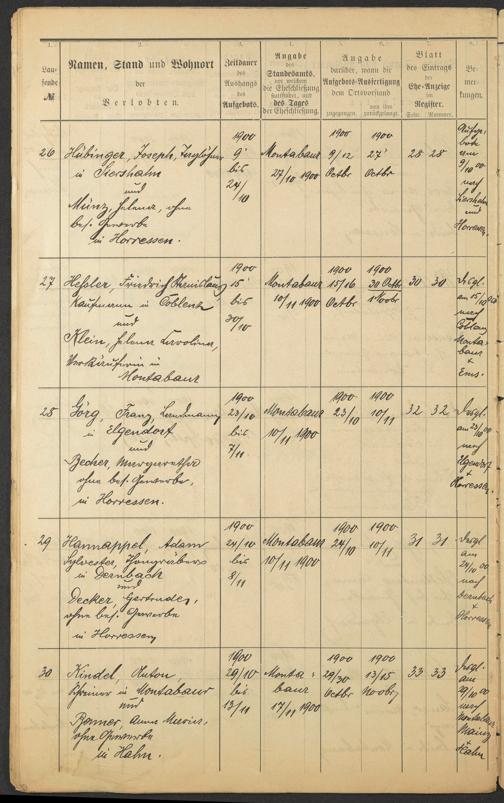 Laufende №
Namen, Stand und Wohnort
der
Verlobten.
Zeitdauer
des
Aushangs
des
Aufgebots.
Angabe
des
Standesamts,
vor welchem
die Eheschließung
stattfindet, und
des Tages
der Eheschließung.
Angabe
darüber, wann die
Aufgebots-Ausfertigung
dem Ortsvorstand
zugegangen.
von ihm
zurückgelangt.
Blatt
des Eintrags
der
Ehe-Anzeige
im
Register.
Seite. Nummer.
Bemerkungen.
26
Hübinger, Joseph, Taglöhner
in Siershahn
und
Münz, Helena, ohne
bes. Gewerbe
in Horressen.
1900
9'
bis
24/10
Montabaur
27/10 1900
1900
9/12
Octbr
1900
27'
Octbr
28 28
Aufge-
bote
am
9/10 00
nach
Siershahn
und
Horressen.
27
Hessler, Friedrich
Kaufmann in Coblenz
und
Klein, Helena Karolina,
Verkäuferin in
Montabaur
1900
15'
bis
30/10
Montabaur
10/11 1900
1900
15/16
Octbr
1900
30 Octb
1 Novbr
30 30
Desgl.
am 15/10 00
nach
Coblenz
Monta-
baur
+
Ems.
28
Görg, Franz, Landmann
in Elgendorf
und
Becker, Margaretha
ohne bes. Gewerbe,
in Horressen.
1900
23/10
bis
7/11
Montabaur
10/11 1900
1900
23/10
1900
10/11
32 32
Desgl.
am 23/10 00
nach
Elgendorf
+
Horressen.
29
Hannappel, Adam
Sylvester, Thongräber
in Dernbach
und
Decker, Gertrude,
ohne bes. Gewerbe
in Horressen
1900
24/10
bis
8/11
Montabaur
10/11 1900
1900
24/10
1900
10/11
31 31
Desgl
am
24/10 00
nach
Dernbach
+
Horressen
30
Kindel, Anton,
Schreiner in Montabaur
und
Anna Maria,
ohne Gewerbe
in Hahn.
1900
29/10
bis
13/11
Monta-
baur
17/11 1900
1900
29/30
Octbr
1900
13/15
Novbr
33 33
Desgl.
am
29/10 00
nach
Montabaur
Mainz
+ Hahn